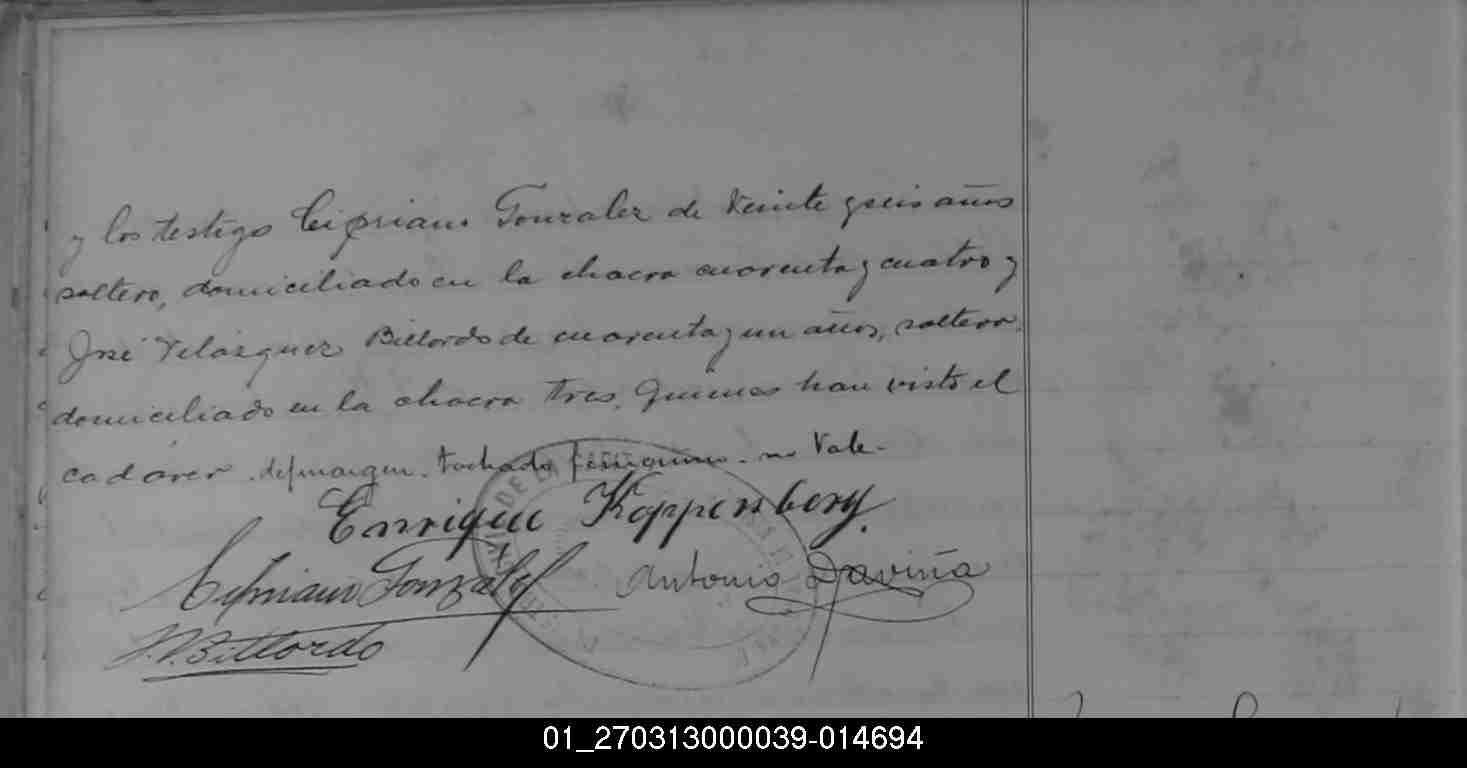 y los testigo Cipriano Gonzalez de veinte y seis años
soltero, domiciliado en la chacra cuarenta y cuatro y
José Velázquez Billordo de cuarenta y un años, soltero
domiciliado en la chacra tres. Quienes han visto el
cadáver. tachado femenino. no Vale.
Enrique Koppersberg.
Cipriano Gonzalez Antonio Daviña
J. V. Billordo
01_270313000039-014694